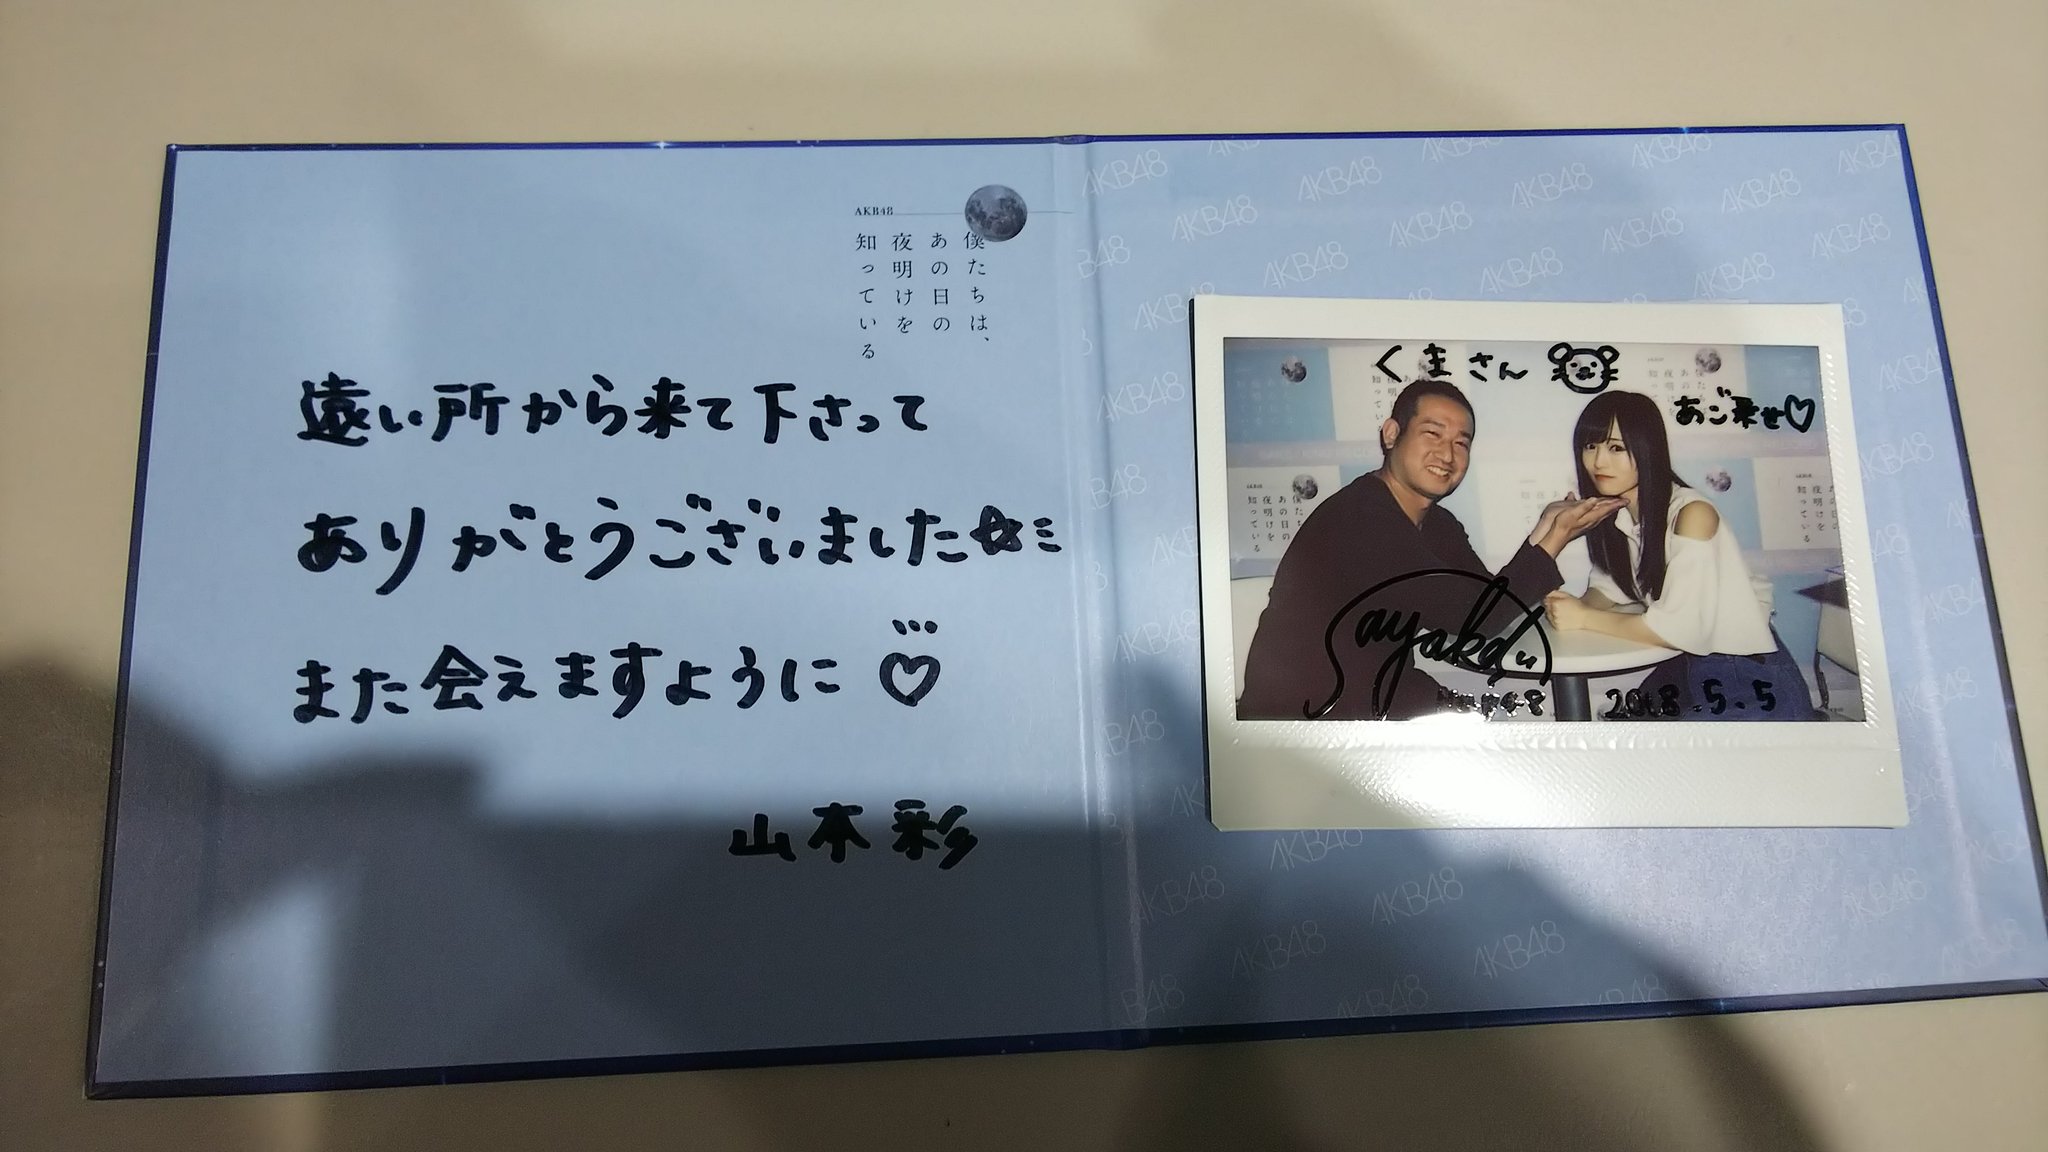 AKB48
僕たちは、
あの日の
夜明けを
知っている
遠い所から来て下さって
ありがとうございました
また会えますように
山本彩
くまさん
あご乗せ
Sayaka
2018.5.5
AKB48